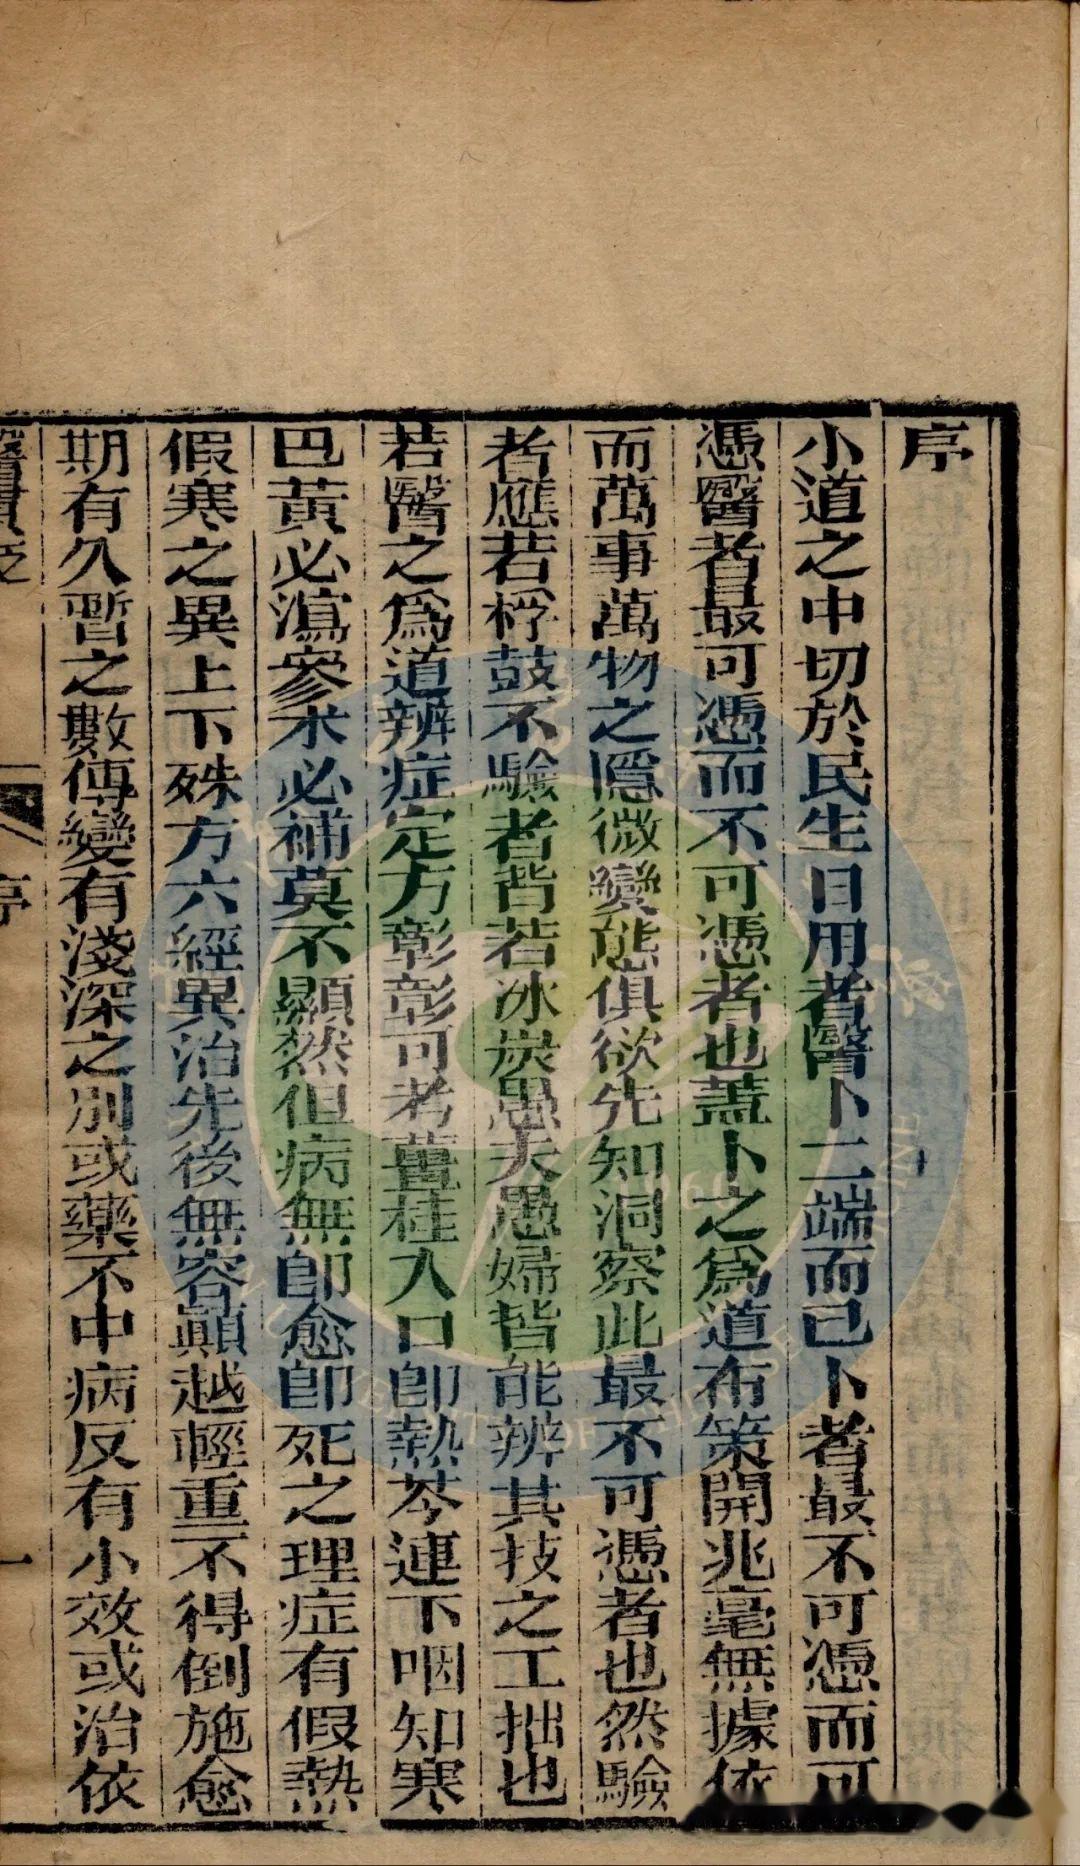 序
小道之中切於民生日用者醫卜二端而已卜者最不可憑而可
憑醫者最可憑而不可憑者也蓋卜之爲道布策開兆毫無據依
而萬事萬物之隱微變態俱欲先知洞察此最不可憑者也然驗
者應若桴鼓不驗者背若冰炭愚夫愚婦皆能辨其技之工拙也
若醫之爲道辨症定方彰彰可考薑桂入口卽熱芩連下咽知寒
巴黃必瀉參朮必補莫不顯然但病無卽愈卽死之理症有假熱
假寒之異上下殊方六經異治先後無容顚越輕重不得倒施愈
期有久暫之數傳變有淺深之別或藥不中病反有小效或治依
醫貫砭
序
一